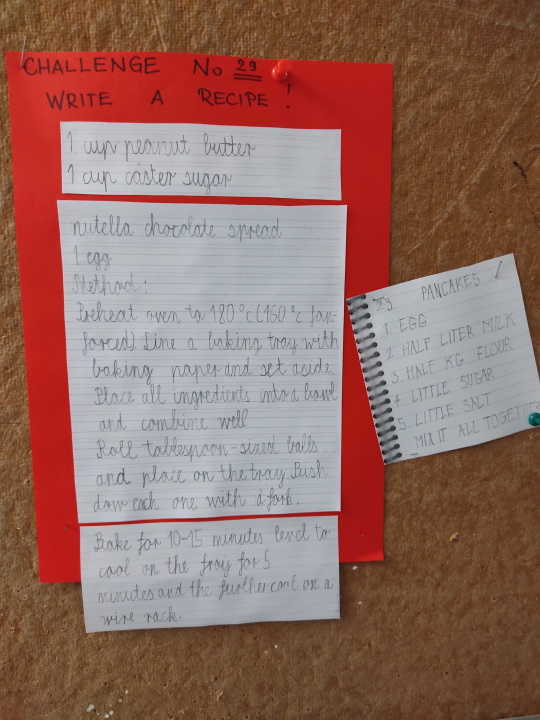 CHALLENGE No 29
WRITE A RECIPE!
1 cup peanut butter
1 cup caster sugar
nutella chocolate spread
1 egg
Method:
Preheat oven to 180°C (160°C fan-
forced). Line a baking tray with
baking paper and set acide.
Place all ingredients into a bowl
and combine well
Roll tablespoon-sized balls
and place on the tray. Push
dow each one with a fork.
Bake for 10-15 minutes level to
cool on the tray for 5
minutes and the further cool on a
wire rack.
PANCAKES
1. EGG
2. HALF LITER MILK
3. HALF KG FLOUR
4. LITTLE SUGAR
5. LITTLE SALT
MIX IT ALL TOGETHER